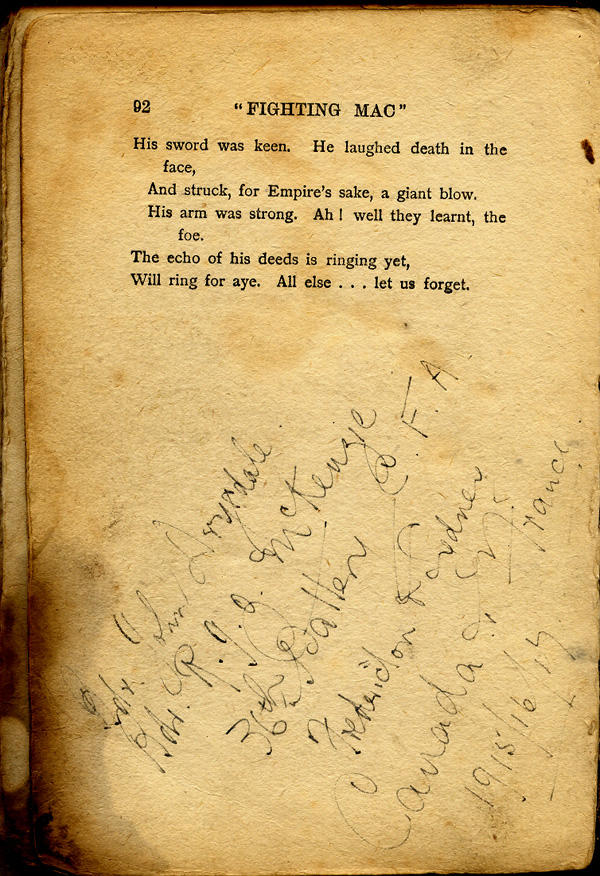 92 "FIGHTING MAC"
His sword was keen. He laughed death in the
face,
And struck, for Empire's sake, a giant blow.
His arm was strong. Ah! well they learnt, the
foe.
The echo of his deeds is ringing yet,
Will ring for aye. All else . . . let us forget.
Gdr. Drysdale.
Gdr. R. McKenzie
36th Battery C. F. A.
Fredericton & Sydney
Canada & France
1915/16/17